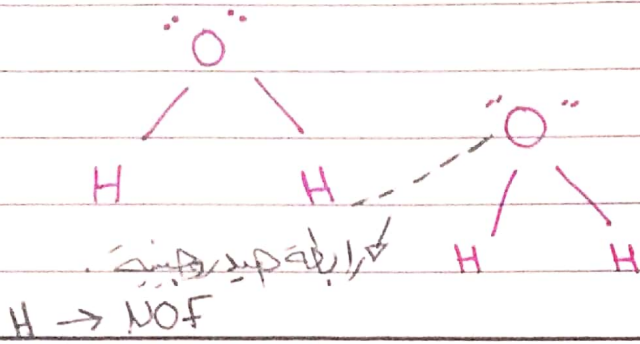 O
O
H H
H H
رابطة هيدروجينية.
H → NOF